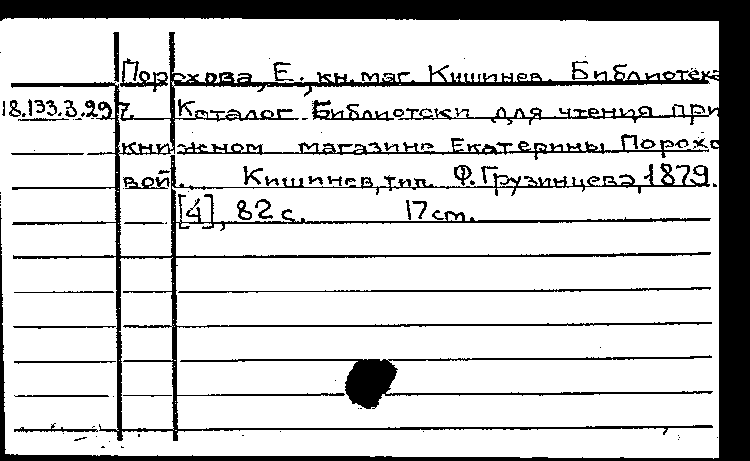 Порохова, Е., кн. маг. Кишинев. Библиотека
18.133.3.297. Каталог Библиотеки для чтения при
книжном магазине Екатерины Порохо
вой. Кишинев, тип. Ф. Грузинцева, 1879.
[4], 82 с. 17 см.